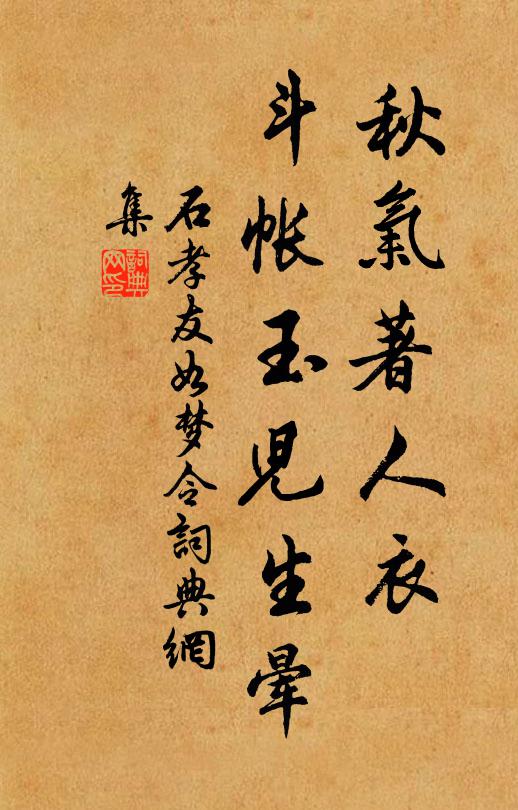 秋氣著人衣
斗帳玉兒生暈
石孝友如梦令詞典網
集
詞典网印